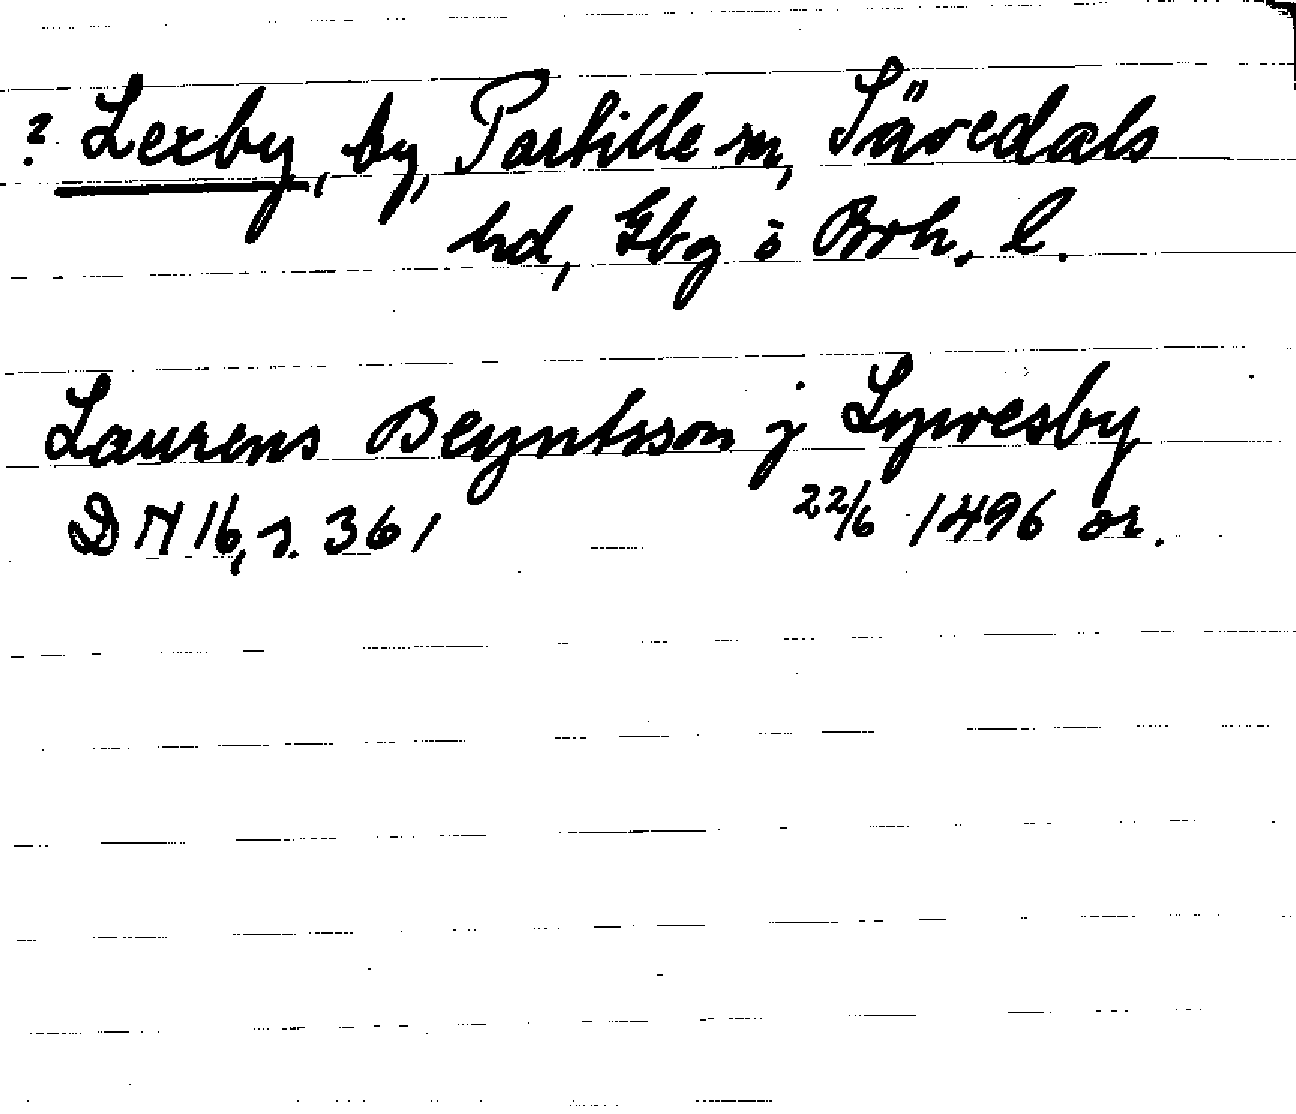 ? Lexby, by, Partille sn, Sävedals
hd, Gbg o Boh. l.
Laurens Beyntsson j Lywesby
DN 16, s. 361 22/6 1496 or.